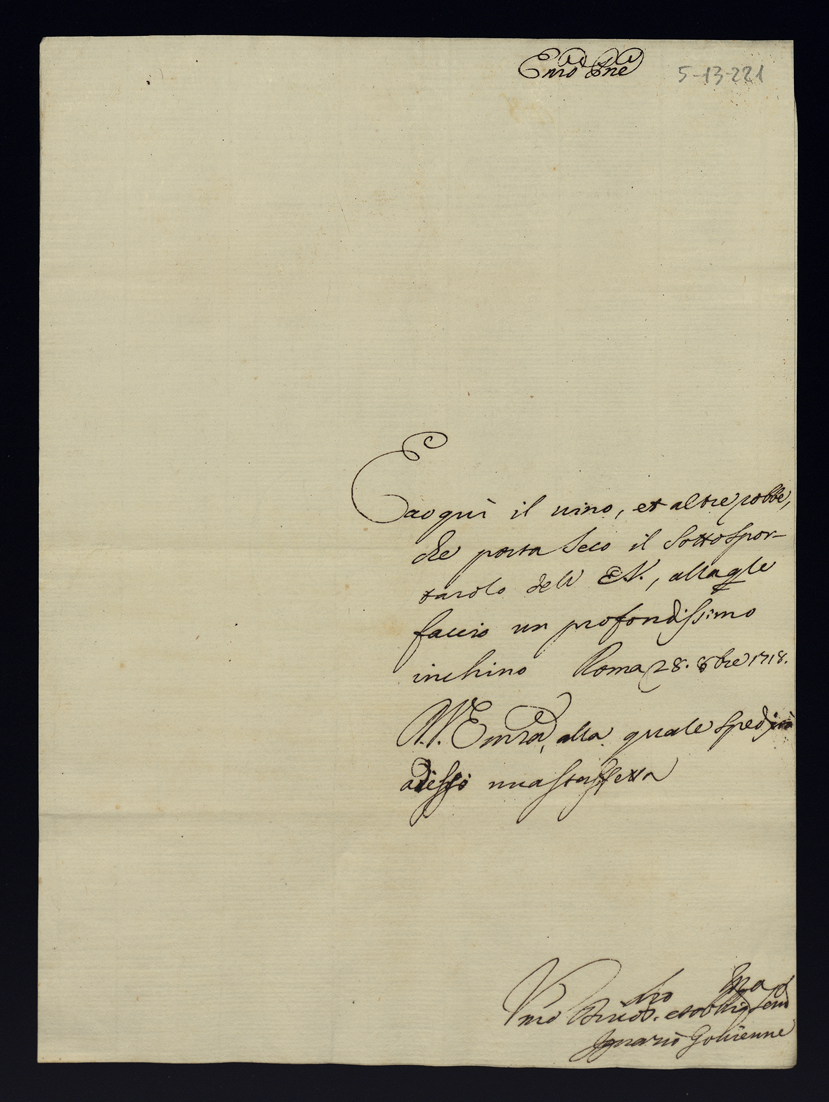 Emo Sre
5-13-221
Eccoqui il vino, et altre robbe,
che porta seco il sottospor-
tarolo dell' E.V., alla qle
faccio un profondissimo
inchino Roma 28. 8bre 1718.
V. Emza, alla quale spedirò
adesso una staffetta
Vmo et obligmo
Ignazio